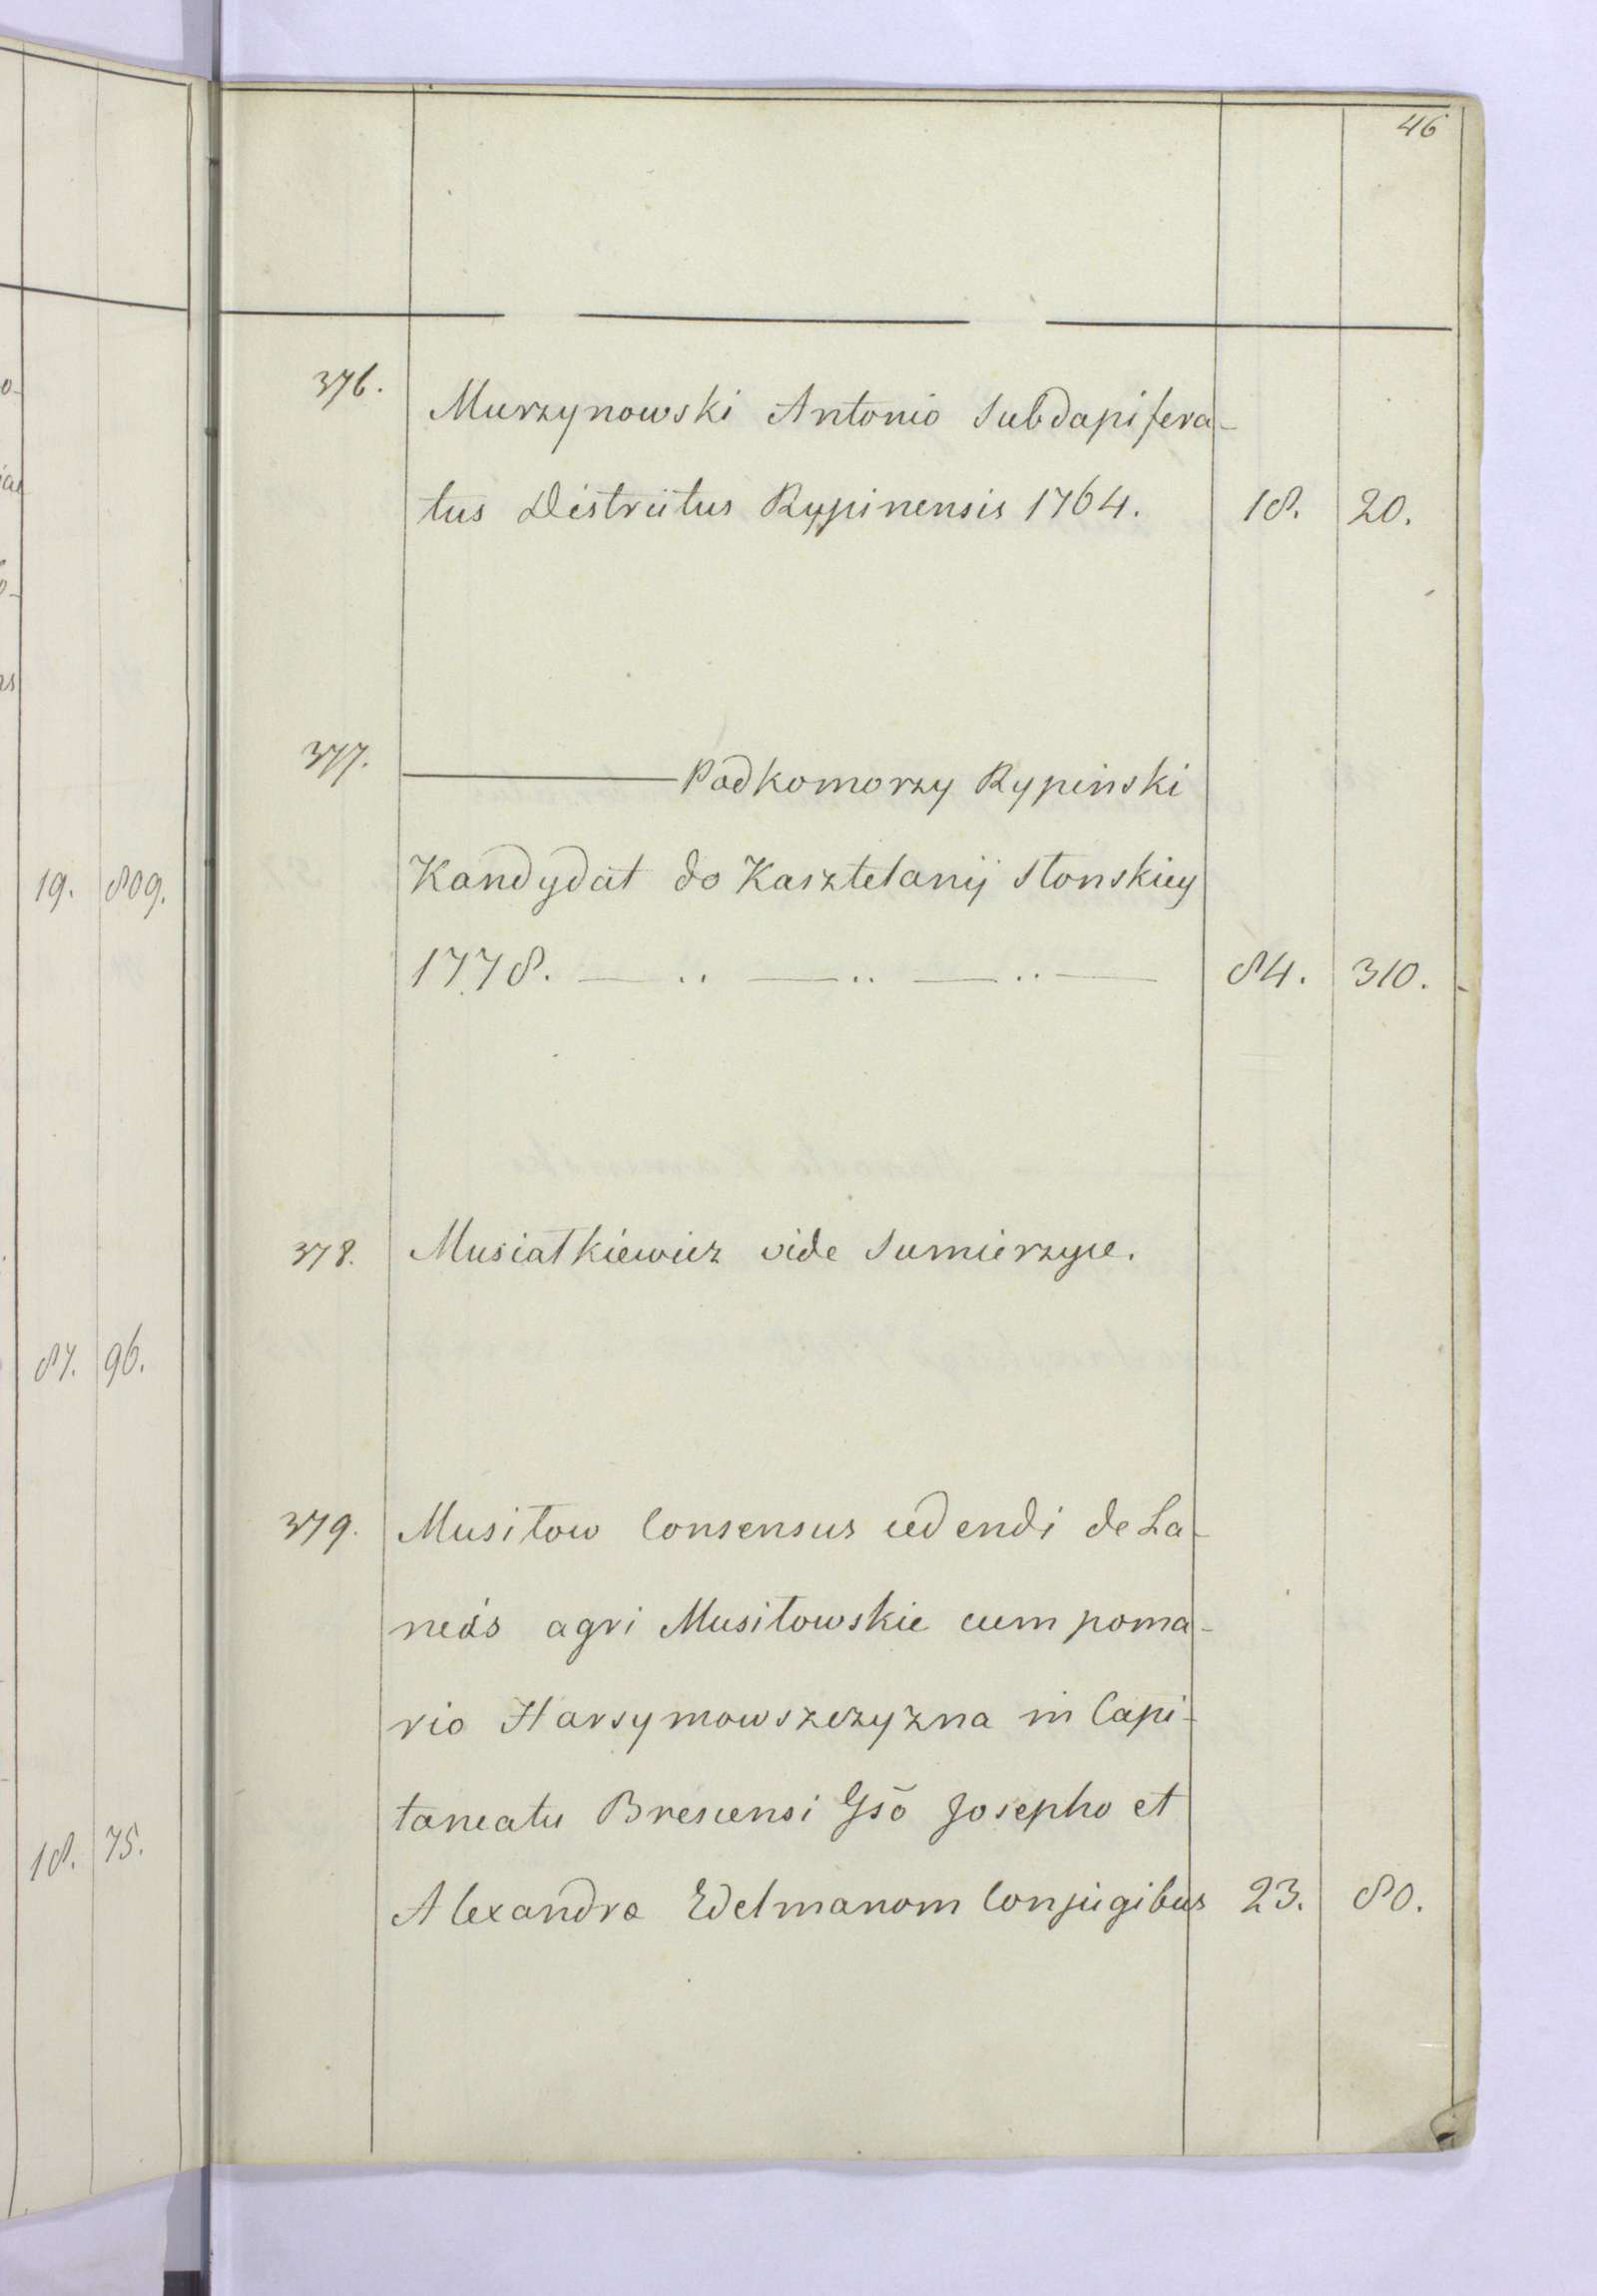 46
376.
Murzynowski Antonio Subdapifera-
tus Districtus Rypinensis 1764. 18. 20.
377.
Podkomorzy Rypinski
Kandydat do Kasztelanij Słonskiey
1778. 84. 310.
378. Musiatkiewicz vide Sumierzyce.
379. Musitow Consensus cedendi de La-
neis agri Musitowskie cum poma-
rio Harsymowszczyzna in Capi-
taneatu Brescensi Gsō Josepho et
Alexandra Edelmanom Conjugibus 23. 80.
19. 809.
87. 96.
18. 75.